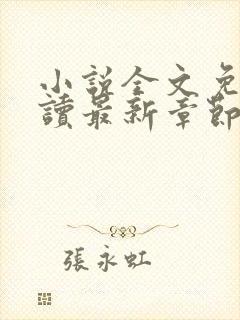 小說全文免
讀最新章節
張永虹